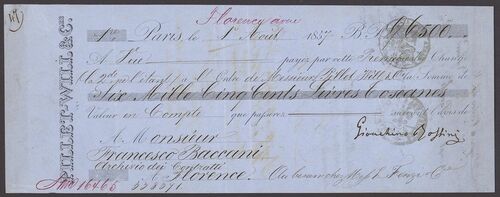 Florence avue
1re Paris, le 1er Août 1857 B.P. £ 6500
A Vue payez par cette Première de Change
(la 2de ne l'étant) à l'Ordre de Messieurs Pillet Will & Cie la Somme de
Six Mille Cinq Cents Livres Toscanes
Valeur en Compte que passerez suivant l'avis de
Gioachino Rossini
A Monsieur
Francesco Baccani
Archivio dei Contratti
Florence
Au besoin chez M. Fenzi
PILLET-WILL & Cie
16465